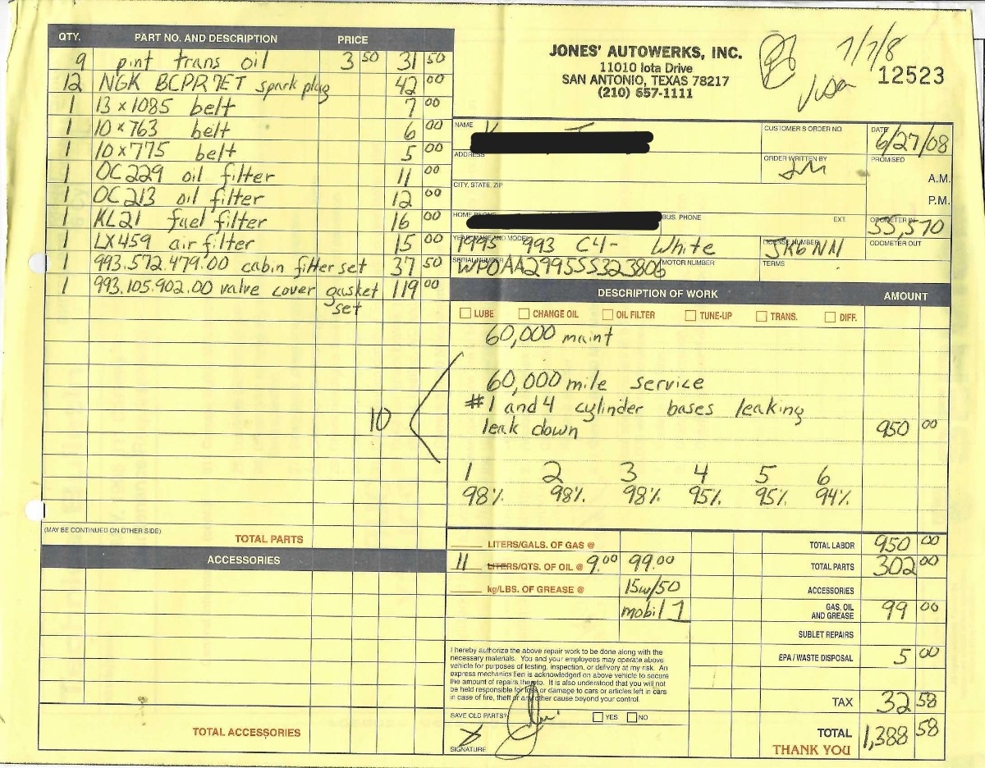 QTY. PART NO. AND DESCRIPTION PRICE
9 pint trans oil 3 50 31 50
12 NGK BCPR7ET spark plug 42 00
1 13 x 1085 belt 7 00
1 10 x 763 belt 6 00
1 10 x 775 belt 5 00
1 OC 229 oil filter 11 00
1 OC 213 oil filter 12 00
1 KL21 fuel filter 16 00
1 LX459 air filter 15 00
1 993.572.479.00 cabin filter set 37 50
1 993.105.902.00 valve cover gasket set 119 00
(MAY BE CONTINUED ON OTHER SIDE)
TOTAL PARTS
ACCESSORIES
TOTAL ACCESSORIES
JONES' AUTOWERKS, INC.
11010 Iota Drive
SAN ANTONIO, TEXAS 78217
(210) 657-1111
7/7/8
Visa
12523
NAME
CUSTOMER'S ORDER NO.
DATE 6/27/08
ADDRESS
ORDER WRITTEN BY
PROMISED
A.M.
P.M.
CITY, STATE, ZIP
HOME PHONE
BUS. PHONE
EXT.
ODOMETER IN
YEAR, MAKE AND MODEL 1995 993 C4- White
LICENSE NUMBER
ODOMETER OUT
SERIAL NUMBER WP0AA2995SS323806
MOTOR NUMBER
TERMS
DESCRIPTION OF WORK AMOUNT
LUBE CHANGE OIL OIL FILTER TUNE-UP TRANS. DIFF.
60,000 maint
60,000 mile service
#1 and 4 cylinder bases leaking
leak down 950 00
10
1 2 3 4 5 6
98% 98% 98% 95% 95% 94%
LITERS/GALS. OF GAS @
11 LITERS/QTS. OF OIL @ 9.00 99.00
kg/LBS. OF GREASE @ 15w/50
mobil 1
TOTAL LABOR 950 00
TOTAL PARTS 302 00
ACCESSORIES
GAS, OIL AND GREASE 99 00
SUBLET REPAIRS
EPA / WASTE DISPOSAL 5 00
TAX 32 58
TOTAL 1,388 58
THANK YOU
I hereby authorize the above repair work to be done along with the
necessary materials. You and your employees may operate above
vehicle for purposes of testing, inspection, or delivery at my risk. An
express mechanics lien is acknowledged on above vehicle to secure
the amount of repairs thereto. It is also understood that you will not
be held responsible for loss or damage to cars or articles left in cars
in case of fire, theft or any other cause beyond your control.
SAVE OLD PARTS? YES NO
X
SIGNATURE